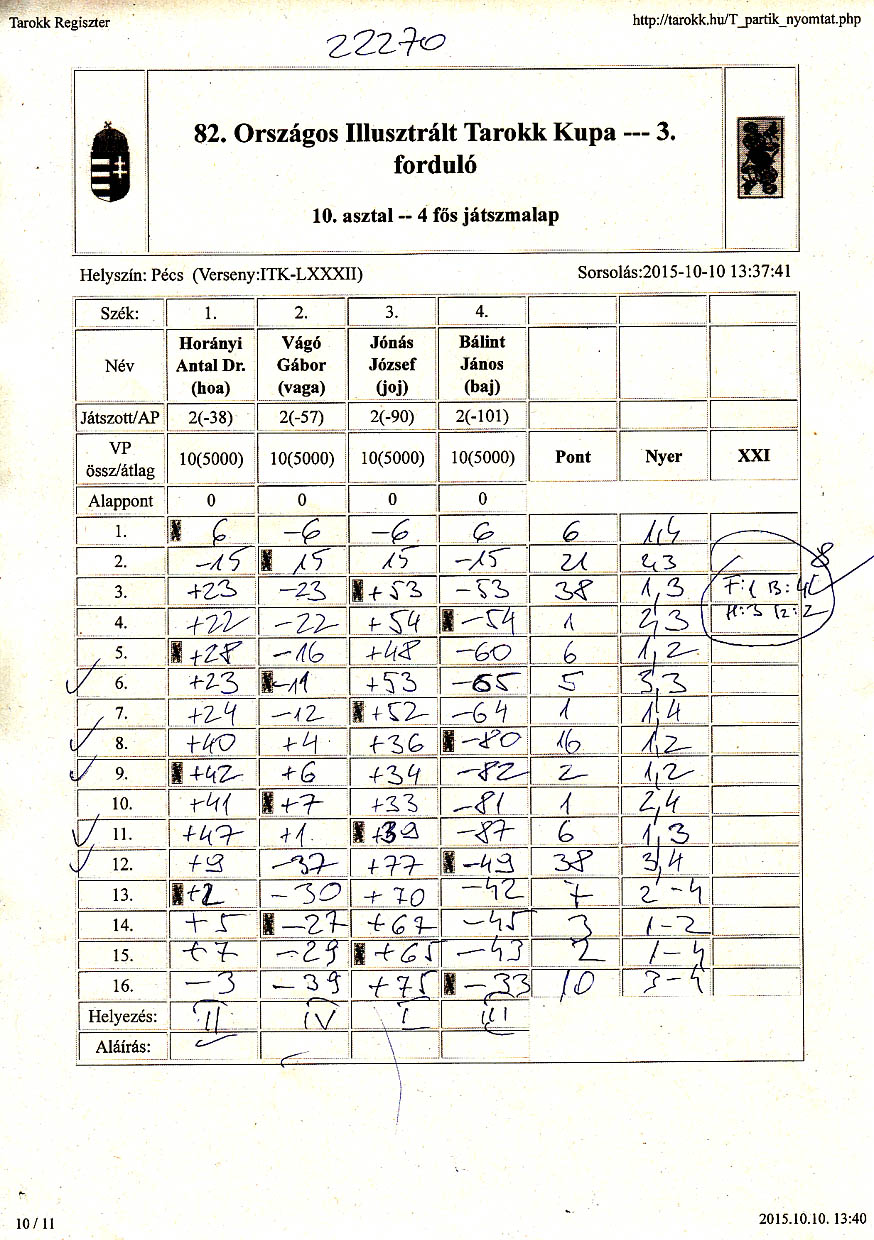 Tarokk Regiszter http://tarokk.hu/T_partik_nyomtat.php
22270
82. Országos Illusztrált Tarokk Kupa --- 3.
forduló
10. asztal -- 4 fős játszmalap
Helyszín: Pécs (Verseny:ITK-LXXXII) Sorsolás:2015-10-10 13:37:41
Szék: 1. 2. 3. 4.
Horányi Vágó Jónás Bálint
Név Antal Dr. Gábor József János
(hoa) (vaga) (joj) (baj)
Játszott/AP 2(-38) 2(-57) 2(-90) 2(-101)
VP
össz/átlag 10(5000) 10(5000) 10(5000) 10(5000) Pont Nyer XXI
Alappont 0 0 0 0
1. 6 -6 -6 6 6 1,4
2. -15 15 15 -15 21 2,3 8
3. +23 -23 +53 -53 38 1,3 F:1 B:4
4. +22 -22 +54 -54 1 2,3 H:3 R:2
5. +28 -16 +48 -60 6 1,2
6. +23 -11 +53 -65 5 3,3
7. +24 -12 +52 -64 1 1,4
8. +40 +4 +36 -80 16 1,2
9. +42 +6 +34 -82 2 1,2
10. +41 +7 +33 -81 1 2,4
11. +47 +1 +39 -87 6 1,3
12. +9 -37 +77 -49 38 3,4
13. +2 -30 +70 -42 7 2-4
14. +5 -27 +67 -45 3 1-2
15. +7 -29 +65 -43 2 1-4
16. -3 -39 +75 -33 10 3-4
Helyezés: II IV I III
Aláírás:
10 / 11 2015.10.10. 13:40